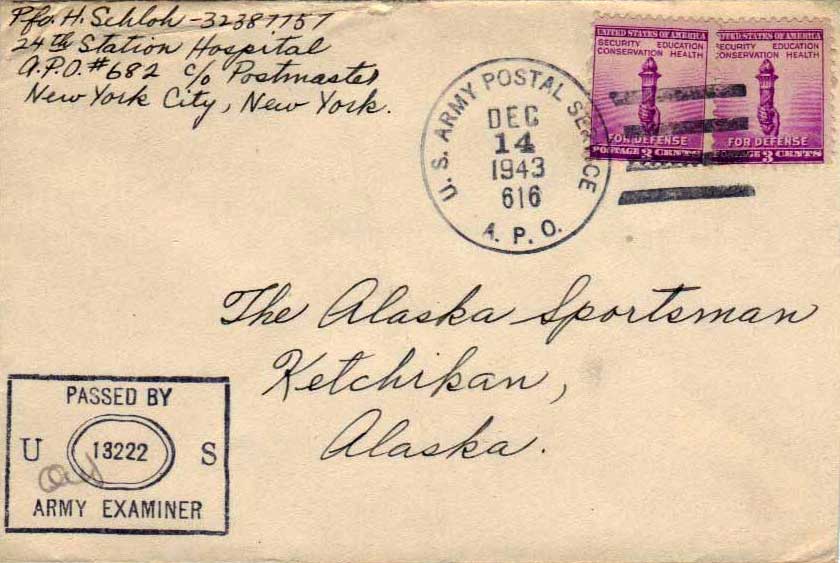 Pfc. H. Schloh - 32387757
24th Station Hospital
A.P.O. #682 c/o Postmaster
New York City, New York.
U. S. ARMY POSTAL SERVICE
DEC
14
1943
616
A. P. O.
UNITED STATES OF AMERICA
SECURITY EDUCATION
CONSERVATION HEALTH
FOR DEFENSE
POSTAGE 3 CENTS
UNITED STATES OF AMERICA
SECURITY EDUCATION
CONSERVATION HEALTH
FOR DEFENSE
POSTAGE 3 CENTS
The Alaska Sportsman
Ketchikan,
Alaska.
PASSED BY
U 13222 S
ARMY EXAMINER